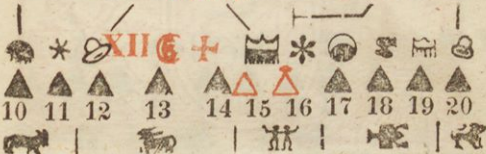 XII
10 11 12 13 14 15 16 17 18 19 20